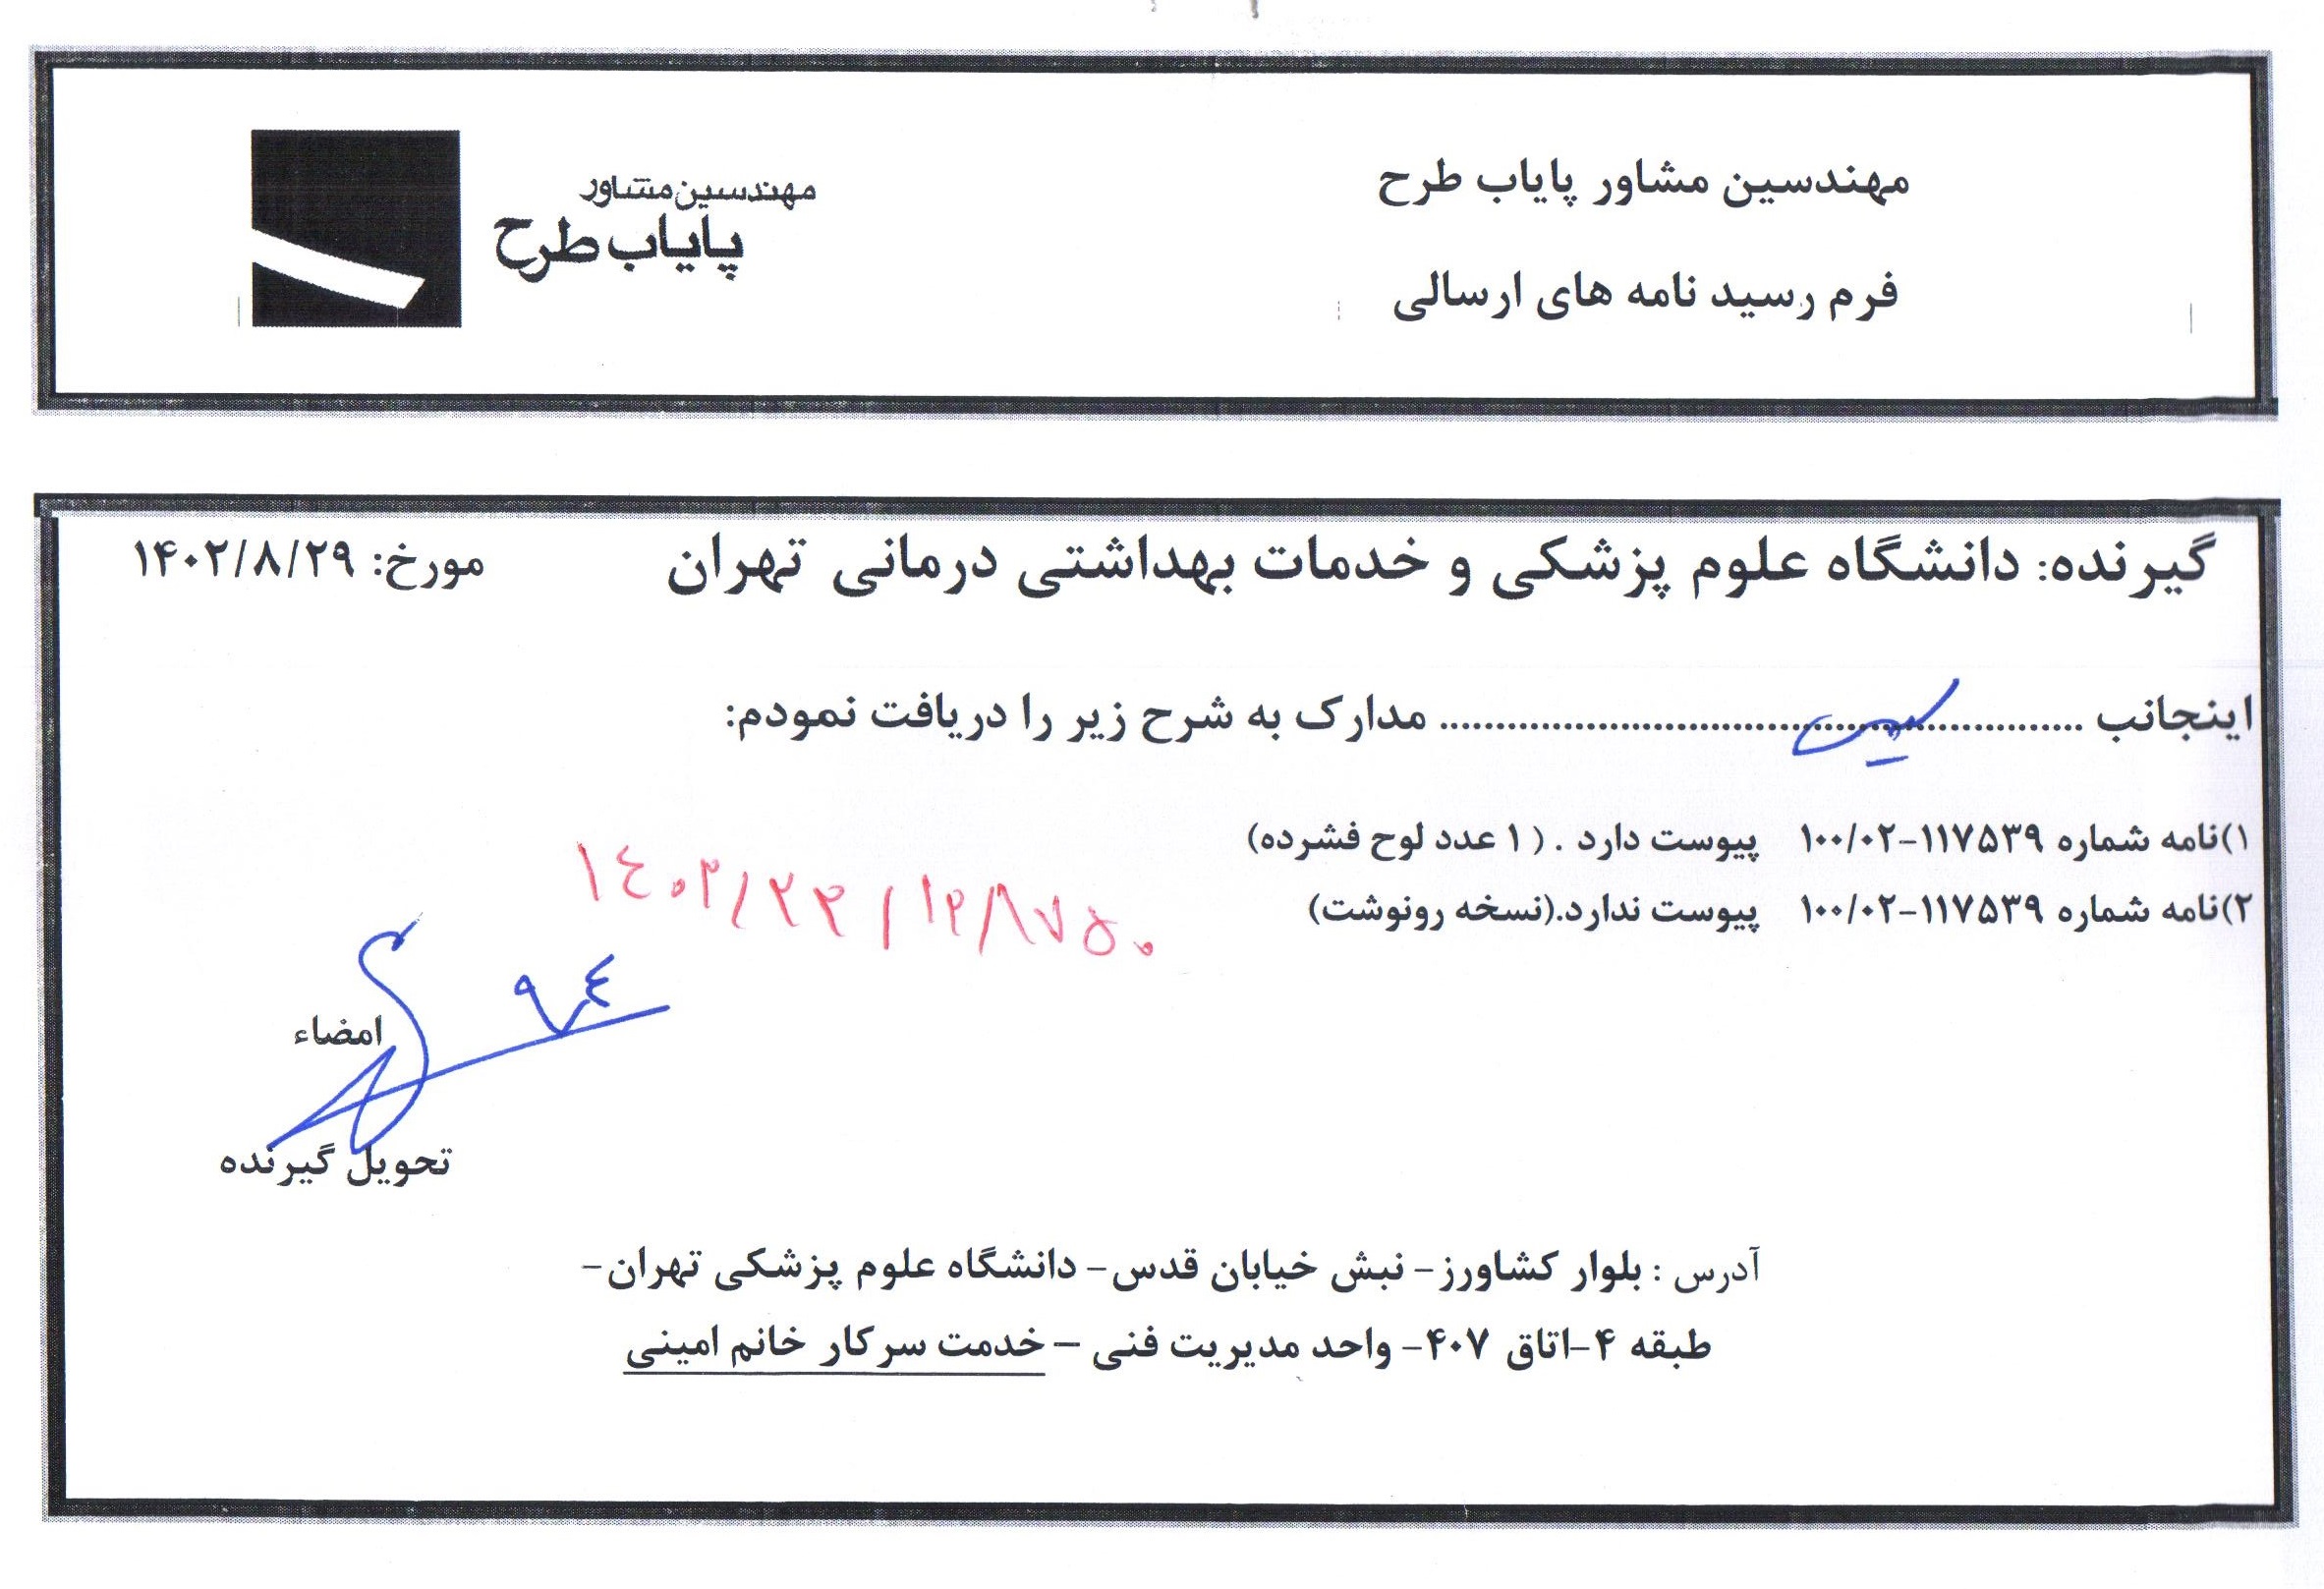 مهندسین مشاور پایاب طرح
فرم رسید نامه های ارسالی
مهندسین مشاور
پایاب طرح
گیرنده: دانشگاه علوم پزشکی و خدمات بهداشتی درمانی تهران مورخ: ۱۴۰۲/۸/۲۹
اینجانب ........................................................ مدارک به شرح زیر را دریافت نمودم:
۱)نامه شماره ۱۱۷۵۳۹-۱۰۰/۰۲ پیوست دارد . (۱ عدد لوح فشرده)
۲)نامه شماره ۱۱۷۵۳۹-۱۰۰/۰۲ پیوست ندارد.(نسخه رونوشت)
امضاء
تحویل گیرنده
آدرس : بلوار کشاورز- نبش خیابان قدس- دانشگاه علوم پزشکی تهران-
طبقه ۴-اتاق ۴۰۷- واحد مدیریت فنی – خدمت سرکار خانم امینی